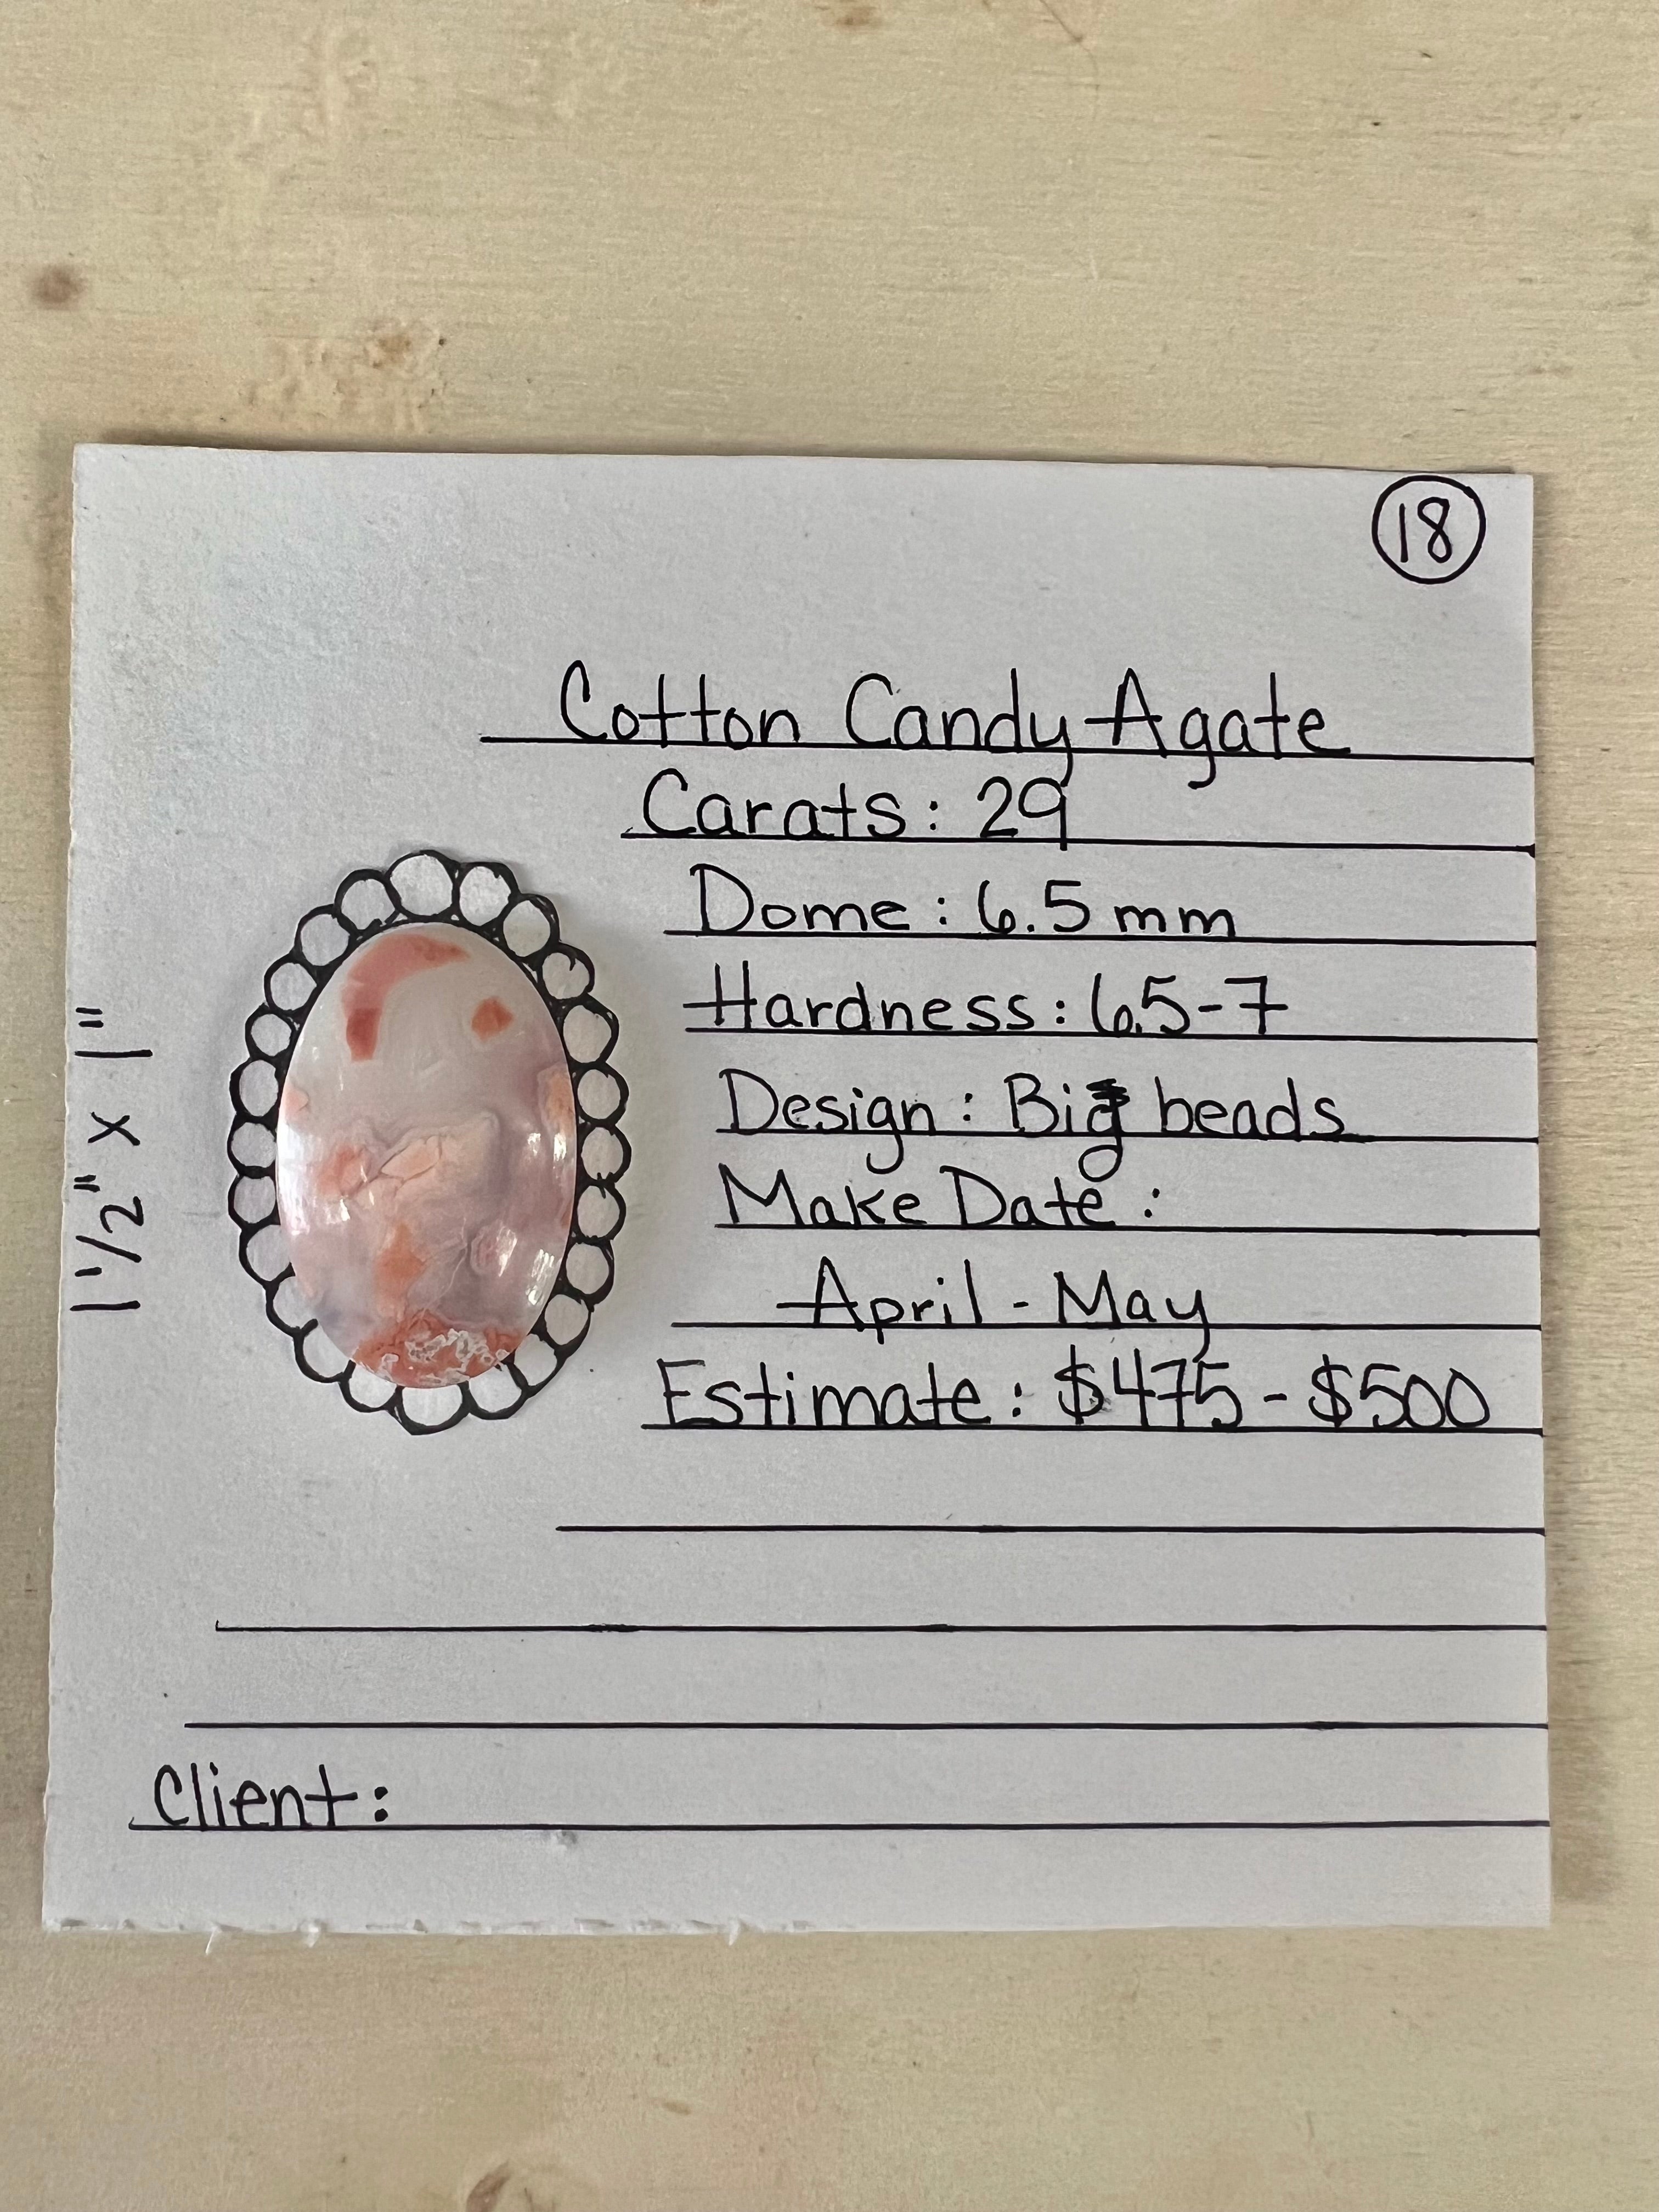 18
Cotton Candy Agate
Carats: 29
Dome: 6.5 mm
Hardness: 6.5-7
Design: Big beads
Make Date:
April - May
Estimate: $475 - $500
1 1/2" x 1"
Client: